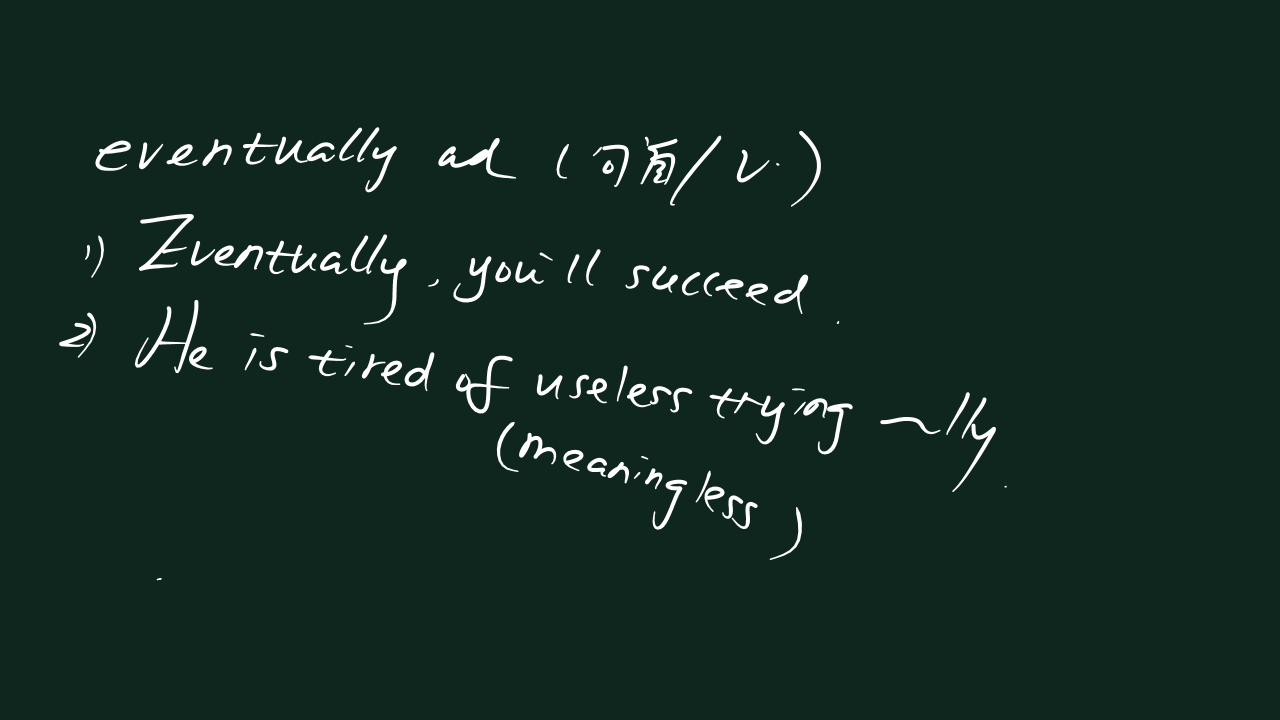 eventually ad (句首/v.)
1) Eventually, you'll succeed.
2) He is tired of useless trying ~lly.
(meaningless)